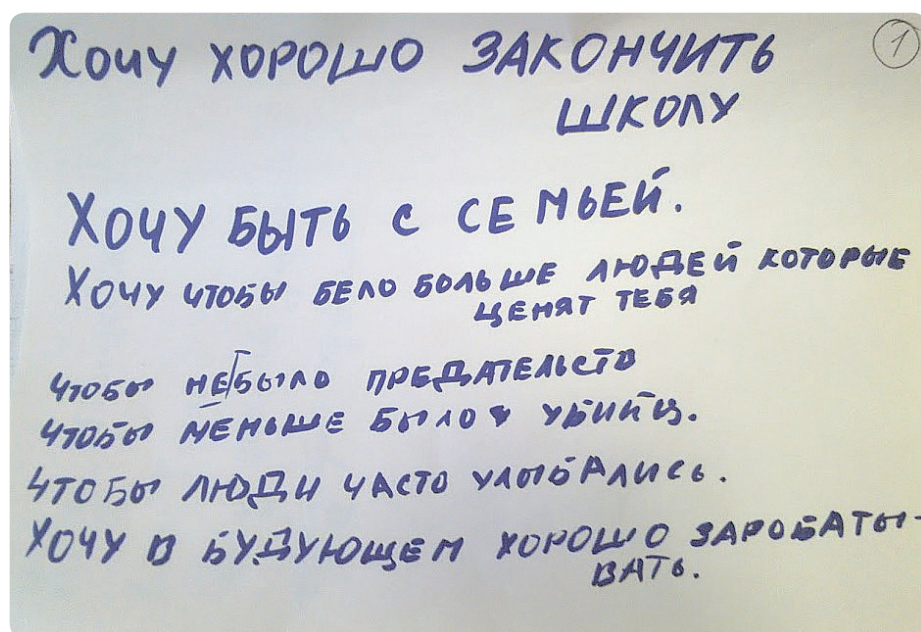 Хочу ХОРОШО ЗАКОНЧИТЬ
1
ШКОЛУ
ХОЧУ БЫТЬ С СЕМЬЕЙ.
ХОЧУ ЧТОБЫ БЕЛО БОЛЬШЕ ЛЮДЕЙ КОТОРЫЕ
ЦЕНЯТ ТЕБЯ
ЧТОБЫ НЕ БЫЛО ПРЕДАТЕЛЬСТВ
ЧТОБЫ МЕНЬШЕ БЫЛО УБИЙЦ.
ЧТОБЫ ЛЮДИ ЧАСТО УЛЫБАЛИСЬ.
ХОЧУ В БУДУЮЩЕМ ХОРОШО ЗАРОБАТЫ-
ВАТЬ.